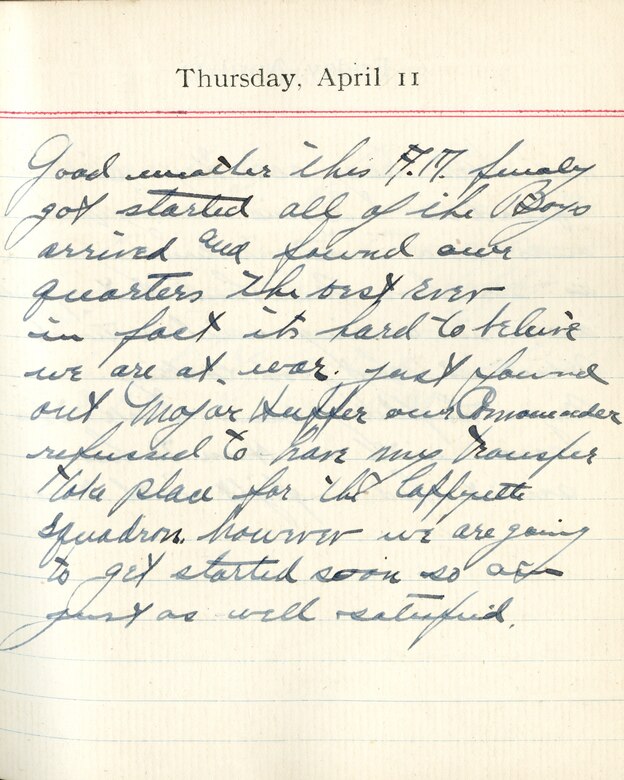 Thursday, April 11
Good weather this A.M. finaly
got started all of the Boys
arrived and found our
quarters the best ever
in fact its hard to belive
we are at war. just found
out Major Huffer our Commander
refused to have my transfer
take place for the Laffyette
Squadron. however we are going
to get started soon so am
just as well satisfied.